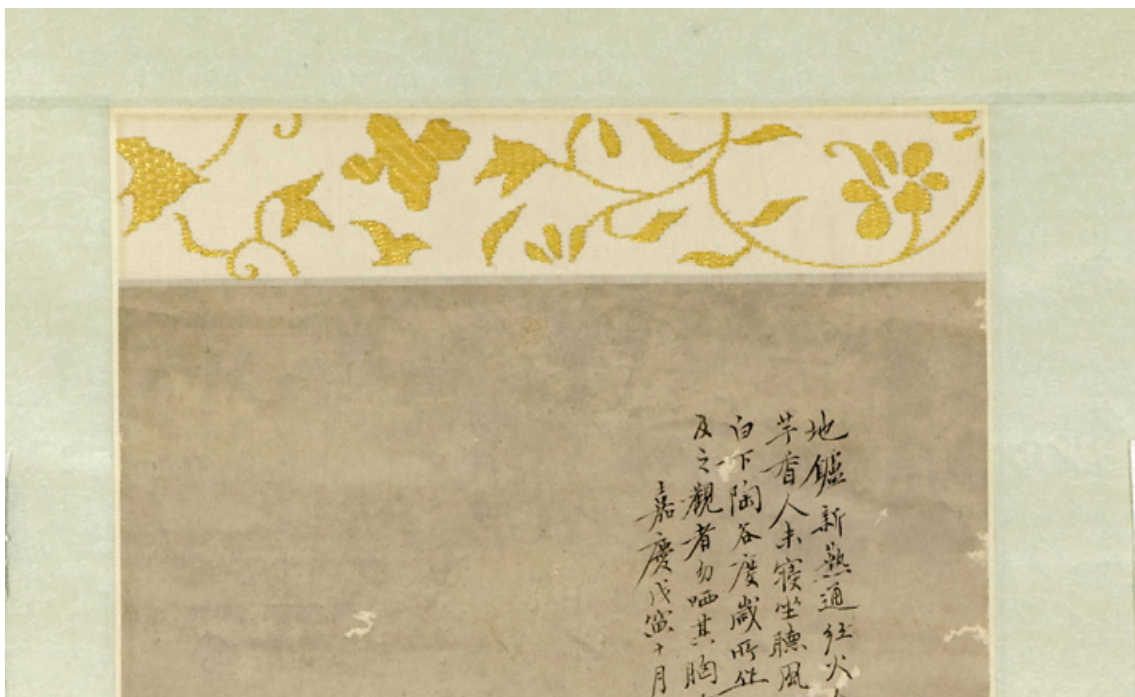 地鑪新熱通紅火
芋香人未寢坐聽風
白下陶谷度歲所作
及之觀者勿哂其胸
嘉慶戊寅十月